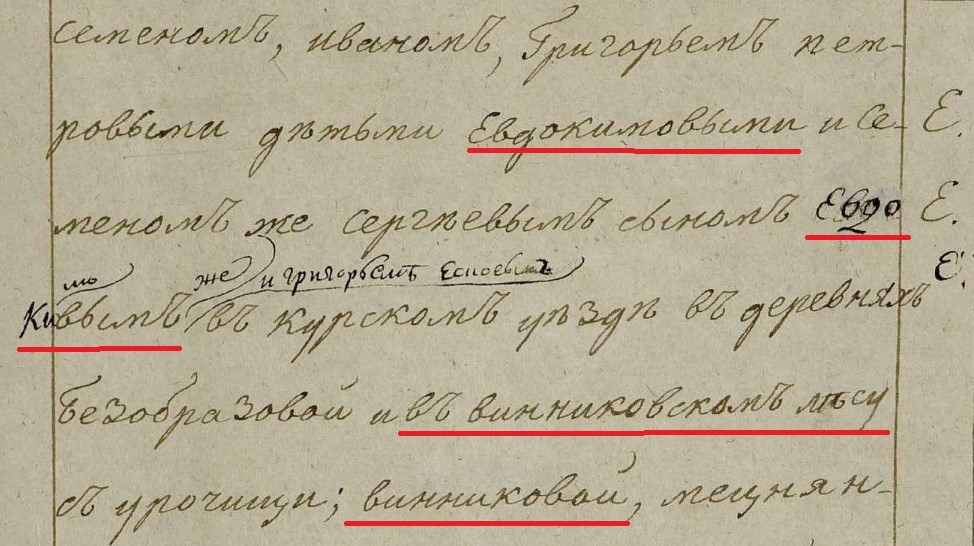 семеномъ, иваномъ, Григорьемъ пет-
ровыми дѣтьми Евдокимовыми и Се- Е.
меномъ же Сергѣевымъ сыномъ Евдо Е.
мо же и григорьемъ Е.
Кивымъ въ курскомъ уѣздѣ въ деревняхъ
безобразовой и въ винниковскомъ лѣсу
съ урочищи; винниковой,